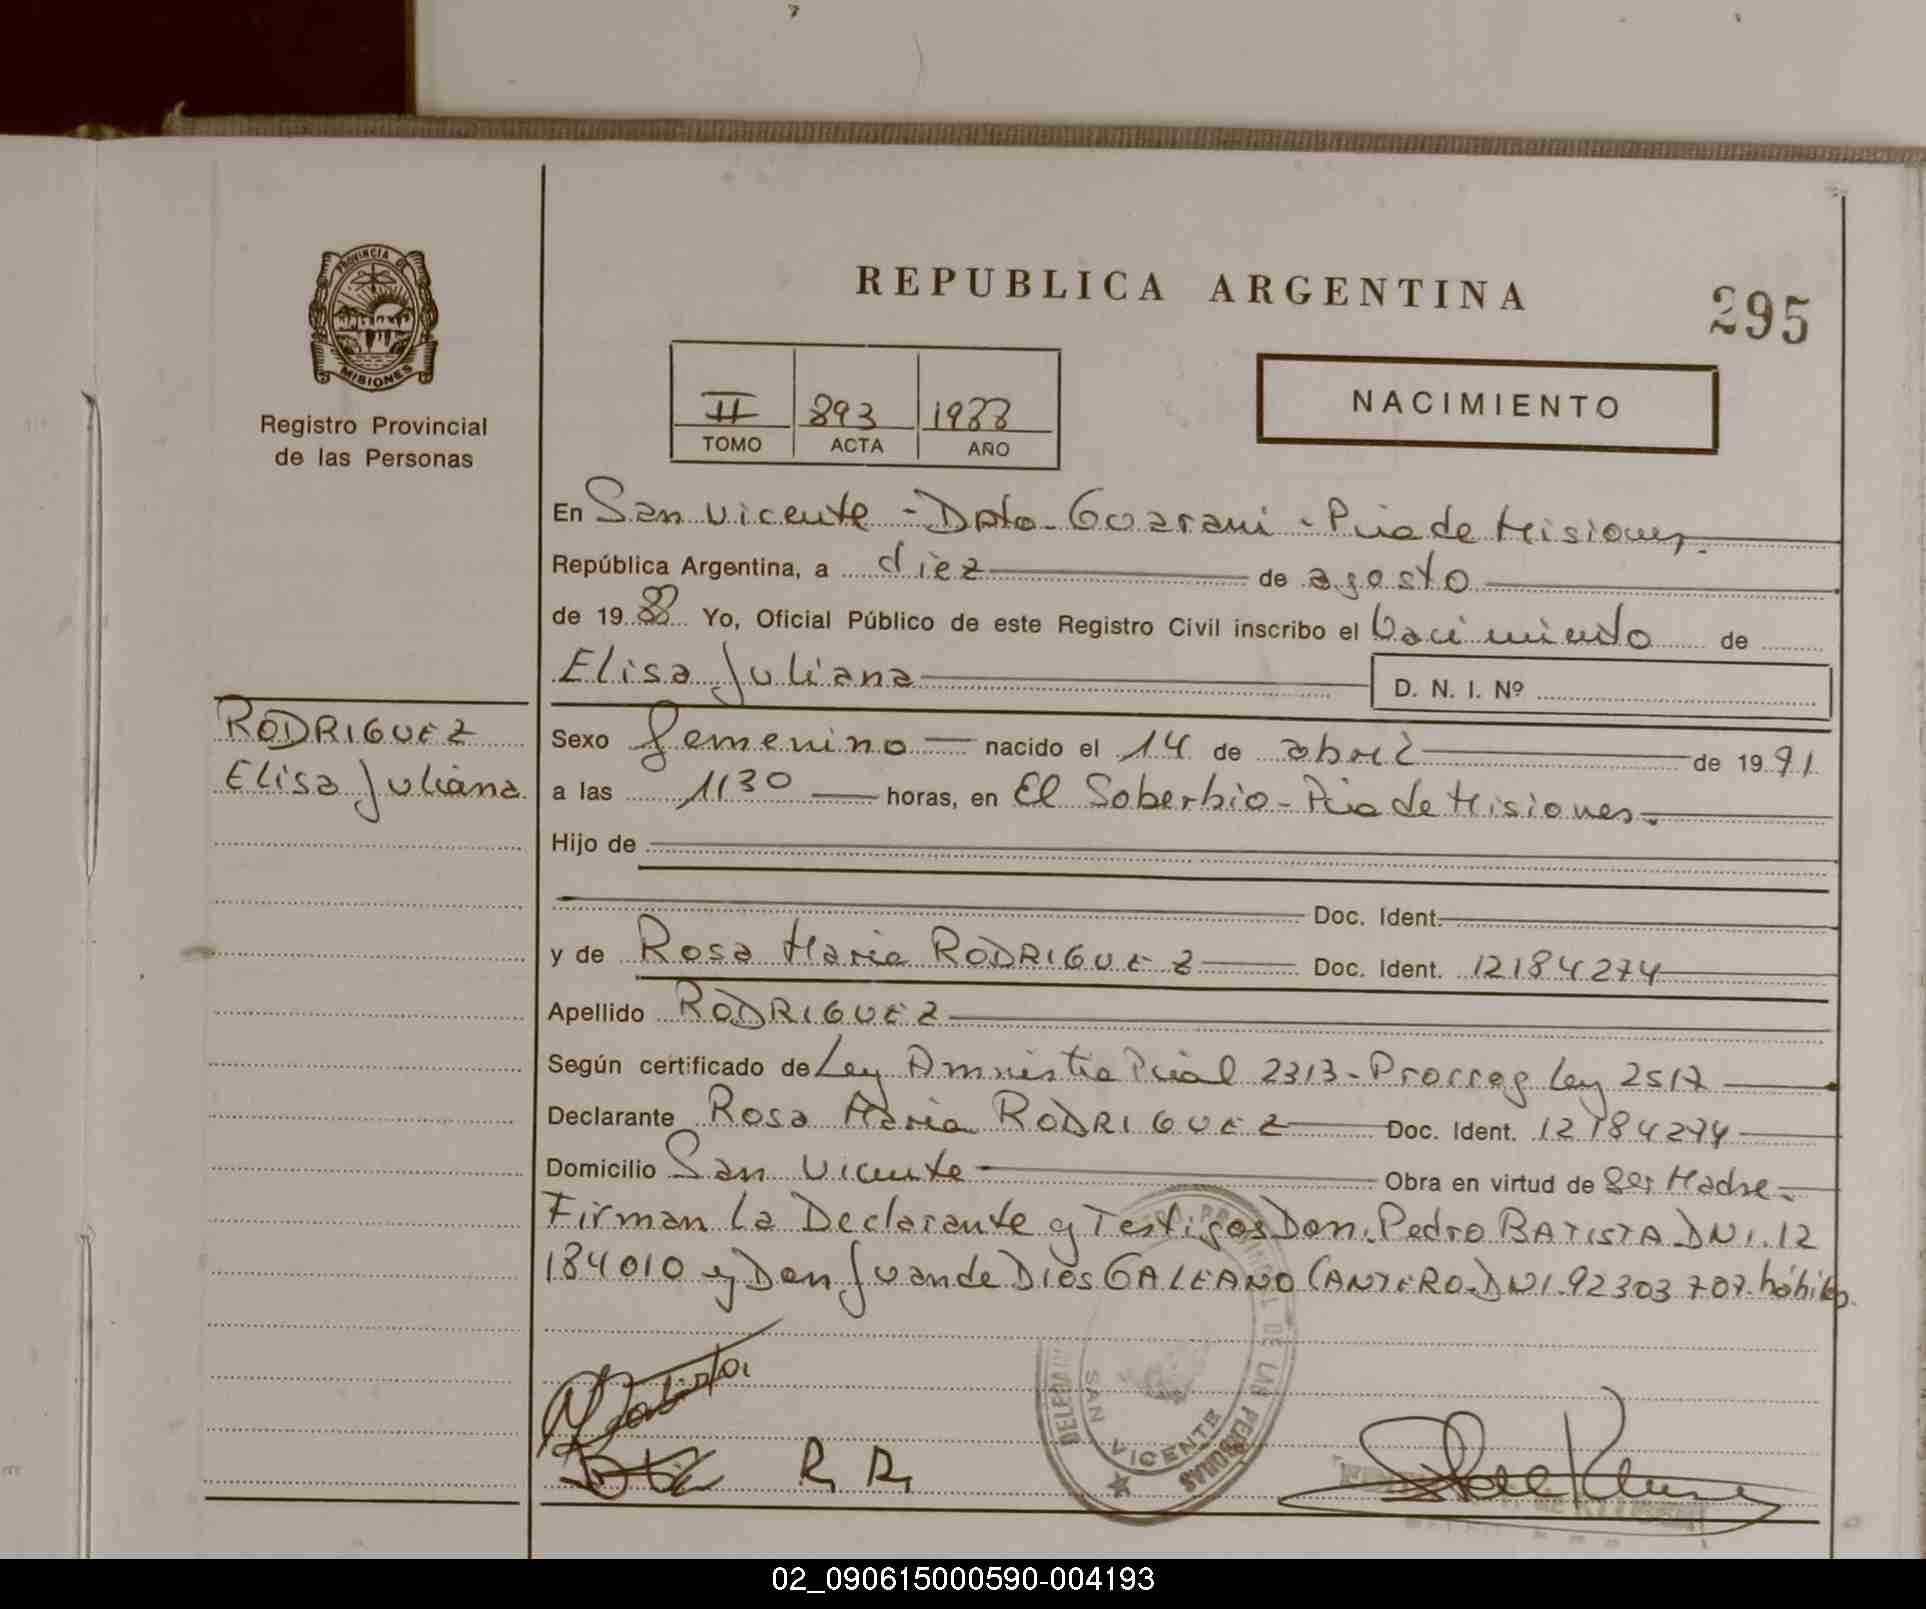 REPUBLICA ARGENTINA
295
PROVINCIA DE
MISIONES
Registro Provincial
de las Personas
II 893 1988
TOMO ACTA AÑO
NACIMIENTO
En San Vicente - Dpto. Guarani - Pcia de Misiones.
República Argentina, a diez de agosto
de 1988 Yo, Oficial Público de este Registro Civil inscribo el Nacimiento de
Elisa Juliana D. N. I. Nº
RODRIGUEZ
Elisa Juliana
Sexo femenino nacido el 14 de abril de 1991
a las 1130 horas, en El Soberbio - Pcia de Misiones.
Hijo de
Doc. Ident.
y de Rosa Maria RODRIGUEZ Doc. Ident. 12184274
Apellido RODRIGUEZ
Según certificado de Ley Amnistia Pcial 2313 - Prorrog Ley 2517
Declarante Rosa Maria RODRIGUEZ Doc. Ident. 12184274
Domicilio San Vicente Obra en virtud de ser Madre.
Firman la Declarante y Testigos Don. Pedro BATISTA DNI. 12
184010 y Don Juan de Dios GALEANO CANTERO - DNI. 92303707. hábiles.
DE LAS PERSONAS
SAN VICENTE
R R
02_090615000590-004193